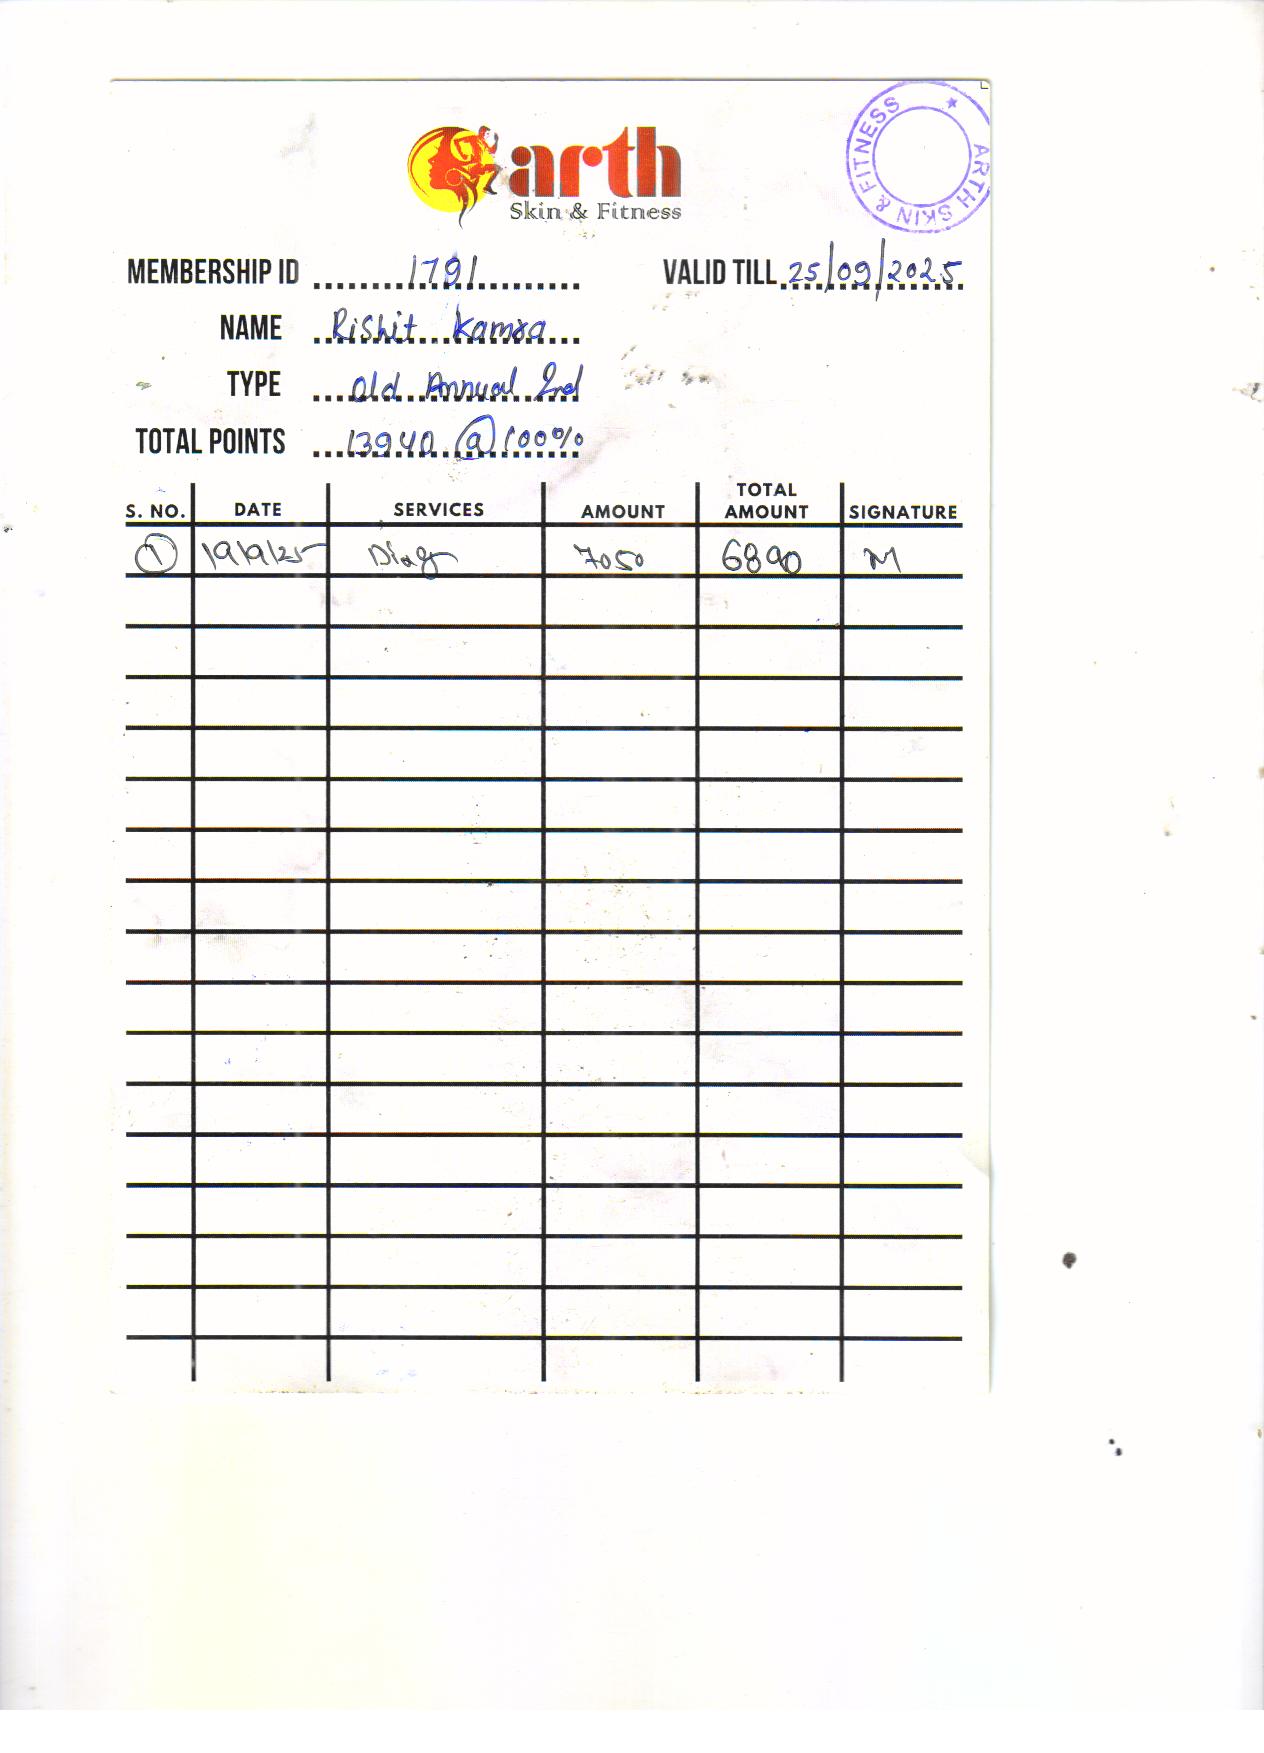 arth
Skin & Fitness
ARTH SKIN & FITNESS ★
MEMBERSHIP ID ........1791.......... VALID TILL 25/09/2025
NAME ..Rishit...Kamra...
TYPE ....Old..Annual..2nd
TOTAL POINTS ...13940 @ 100%
S. NO. DATE SERVICES AMOUNT TOTAL AMOUNT SIGNATURE
① 19/9/25 Diag 7050 6890 M